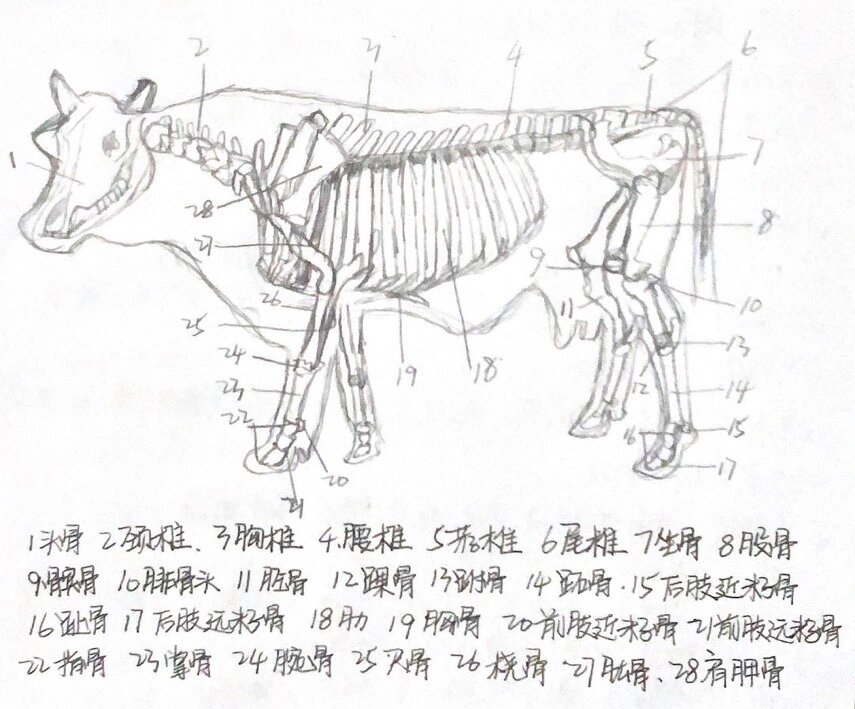 2
3
4
5
6
1
7
28
8
27
9
26
10
25
11
24
13
19
18
12
23
14
22
16
15
20
17
21
1头骨 2颈椎、3胸椎 4腰椎 5荐椎 6尾椎 7坐骨 8股骨
9髌骨 10腓骨头 11胫骨 12踝骨 13跗骨 14跖骨·15后肢近籽骨
16趾骨 17后肢远籽骨 18肋 19胸骨 20前肢近籽骨 21前肢远籽骨
22指骨 23掌骨 24腕骨 25尺骨 26桡骨 27肱骨、28肩胛骨